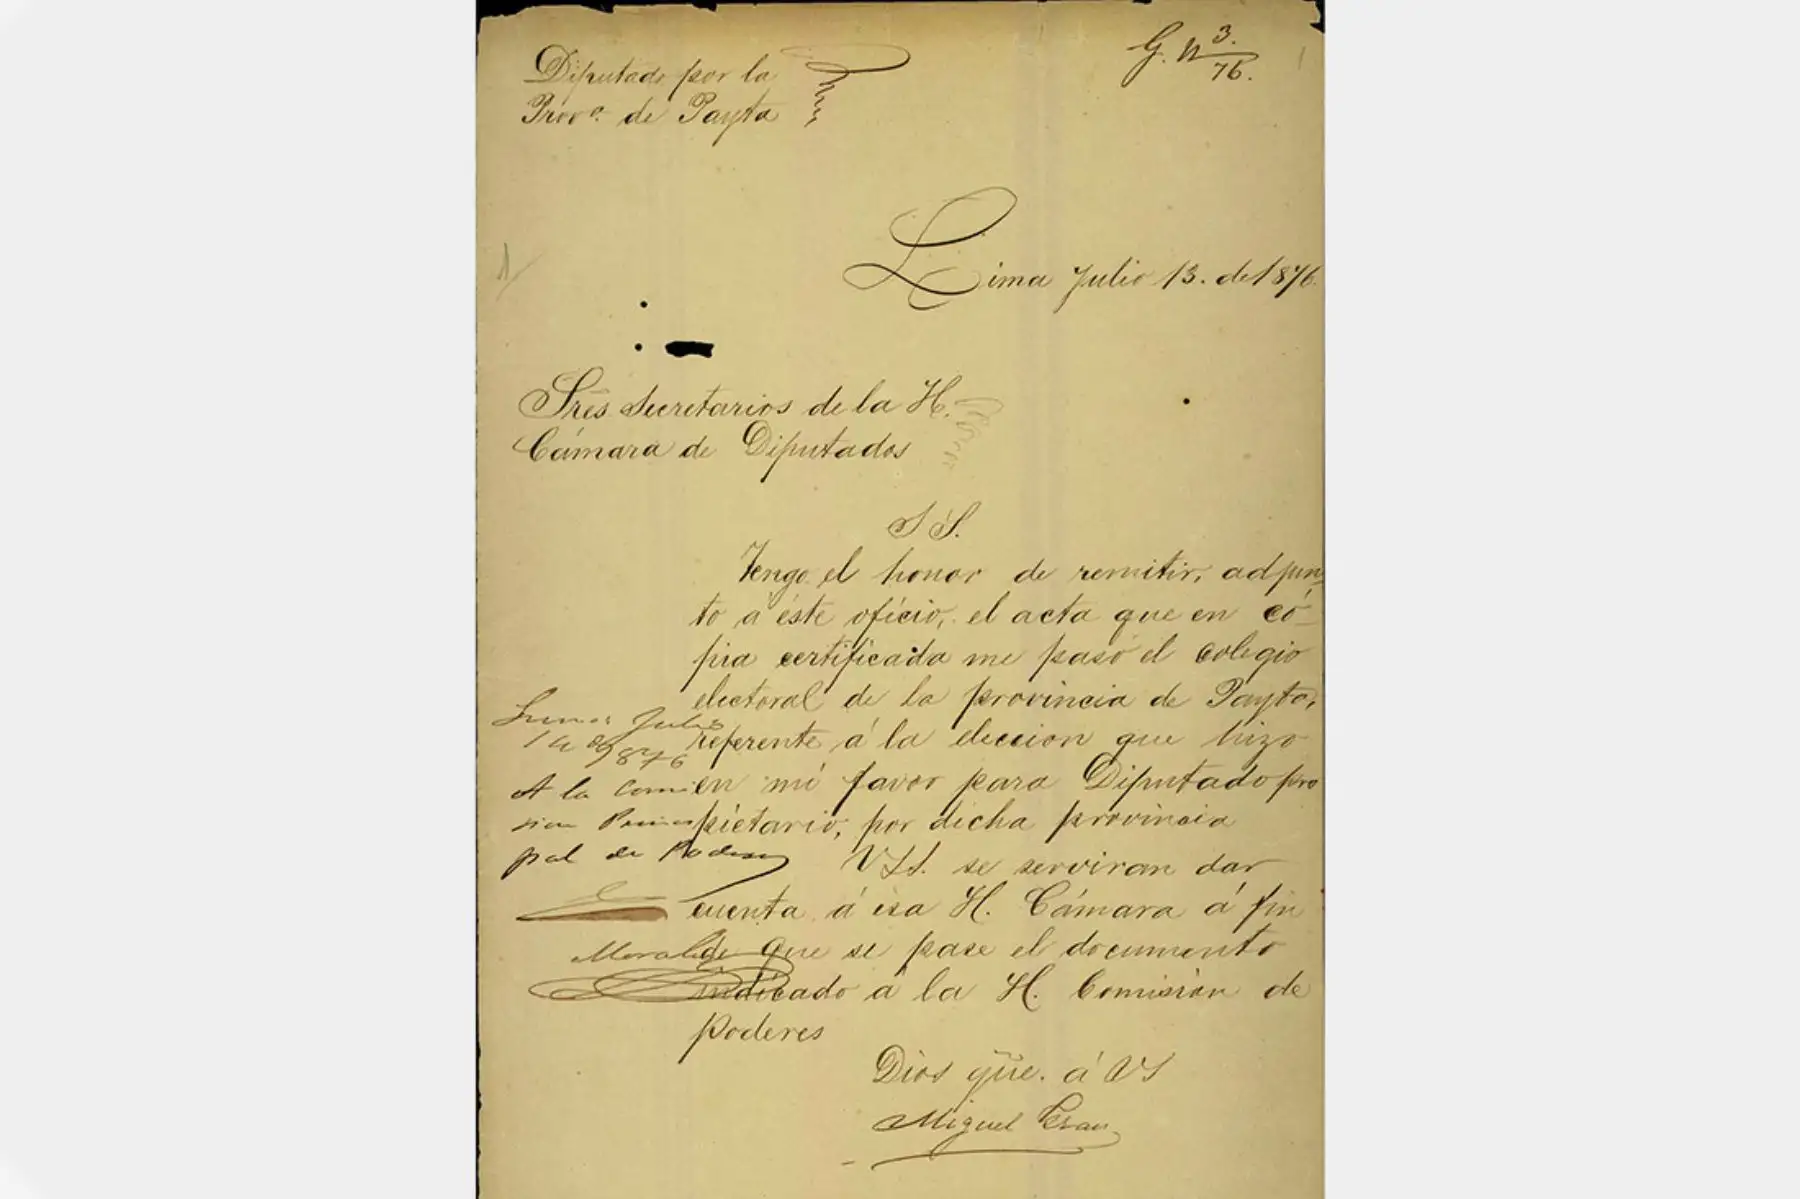 Diputado por la
Provª. de Payta
G. N 3.
76.
Lima Julio 13. de 1876.
Sres. Secretarios de la H.
Cámara de Diputados
S S.
Tengo el honor de remitir, adjun
to á éste oficio, el acta que en có-
pia certificada me pasó el colegio
electoral de la provincia de Payta,
referente á la eleccion que hizo
en mi favor para Diputado pro
pietario, por dicha provincia
VSS. se serviran dar
cuenta á esa H. Cámara á fin
de que se pase el documento
indicado á la H. Comisión de
poderes
Dios güe. á VS
Miguel Grau
Lima Julio
14 1876
A la Comi
sion Princi
pal de Poderes
Morales